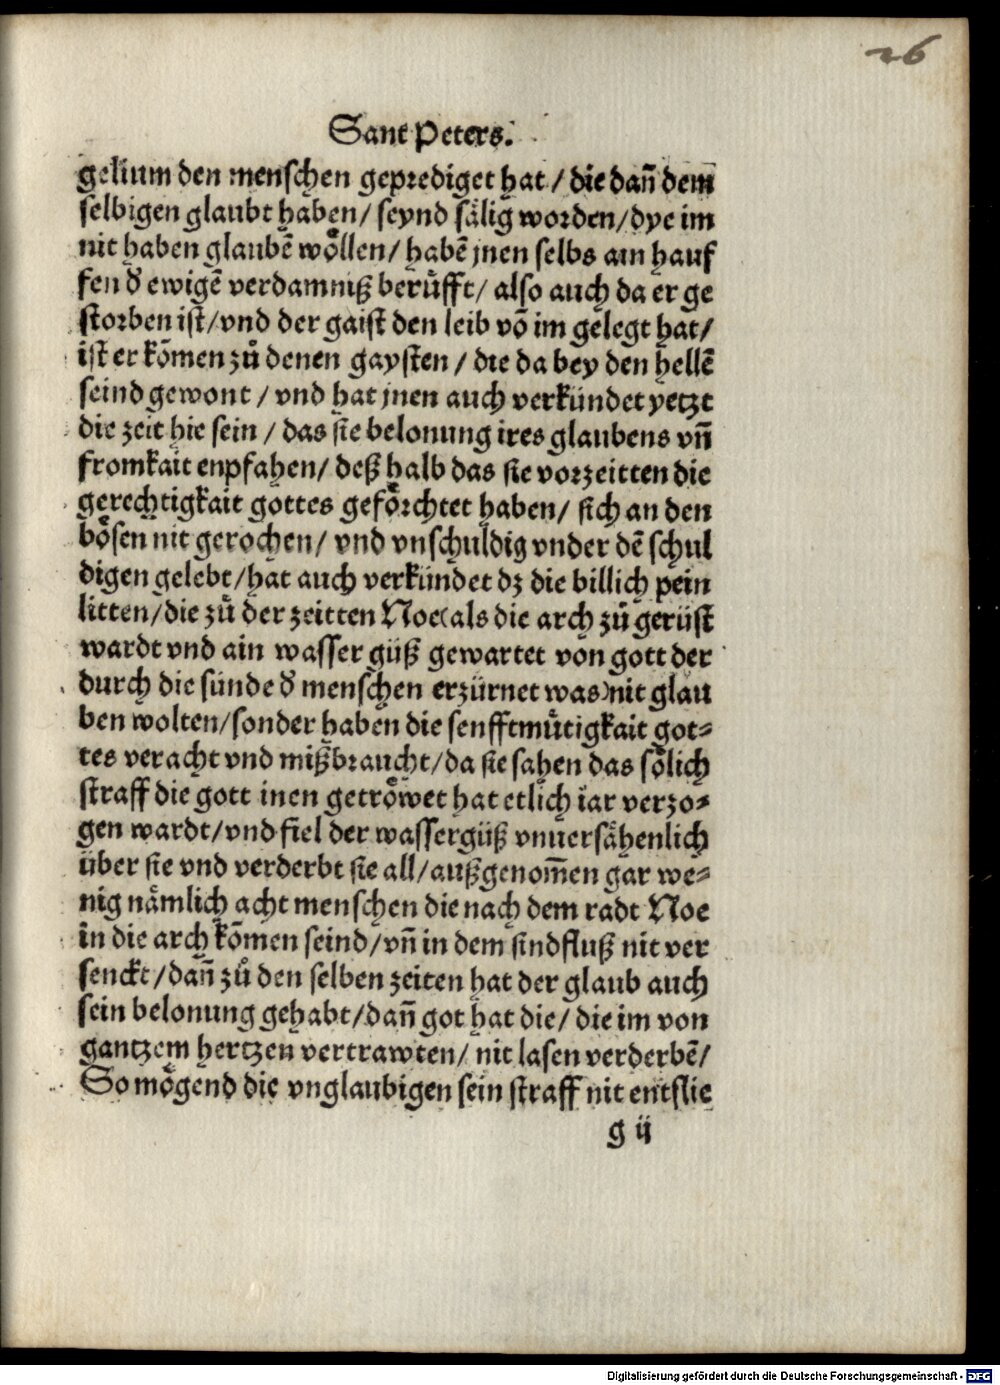 26
Sant Peters.
gelium den menschen geprediget hat / die dañ dem
selbigen glaubt haben / seynd sälig worden / dye im
nit haben glaubẽ wöllen / habẽ jnen selbs ain hauf
fen đ ewigẽ verdamniß berüfft / also auch da er ge
storben ist / vnd der gaist den leib võ im gelegt hat /
ist er kõmen zů denen gaysten / die da bey den hellẽ
seind gewont / vnd hat jnen auch verkündet yetzt
die zeit hie sein / das sie belonung ires glaubens vñ
fromkait enpfahen / deß halb das sie vorzeitten die
gerechtigkait gottes geförchtet haben / sich an den
bösen nit gerochen / vnd vnschuldig vnder dẽ schul
digen gelebt / hat auch verkündet dz die billich pein
litten / die zů der zeitten Noe (als die arch zů gerüst
wardt vnd ain wasser güß gewartet von gott der
durch die sünde đ menschen erzürnet was) nit glau
ben wolten / sonder haben die senfftmütigkait got⸗
tes veracht vnd mißbraucht / da sie sahen das sölich
straff die gott inen getröwet hat etlich iar verzo⸗
gen wardt / vnd fiel der wassergüß vnuersähenlich
über sie vnd verderbt sie all / außgenom̃en gar we⸗
nig nämlich acht menschen die nach dem radt Noe
in die arch kõmen seind / vñ in dem sindfluß nit ver
senckt / dañ zů den selben zeiten hat der glaub auch
sein belonung gehabt / dañ got hat die / die im von
gantzem hertzen vertrawten / nit lasen verderbẽ /
So mögend die vnglaubigen sein straff nit entflie
g ij
Digitalisierung gefördert durch die Deutsche Forschungsgemeinschaft - DFG